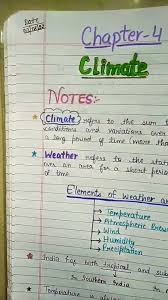 Date
Chapter-4
Climate
NOTES:-
Climate refers to the sum
conditions and variations over
a long period of time (more tha
Weather refers to the stat
over an area for a short perio
of time.
Elements of weather an
→ Temperature
→ Atmospheric Press
→ Wind
→ Humidity
→ Precipitation
India has both tropical and sub
in Southern india